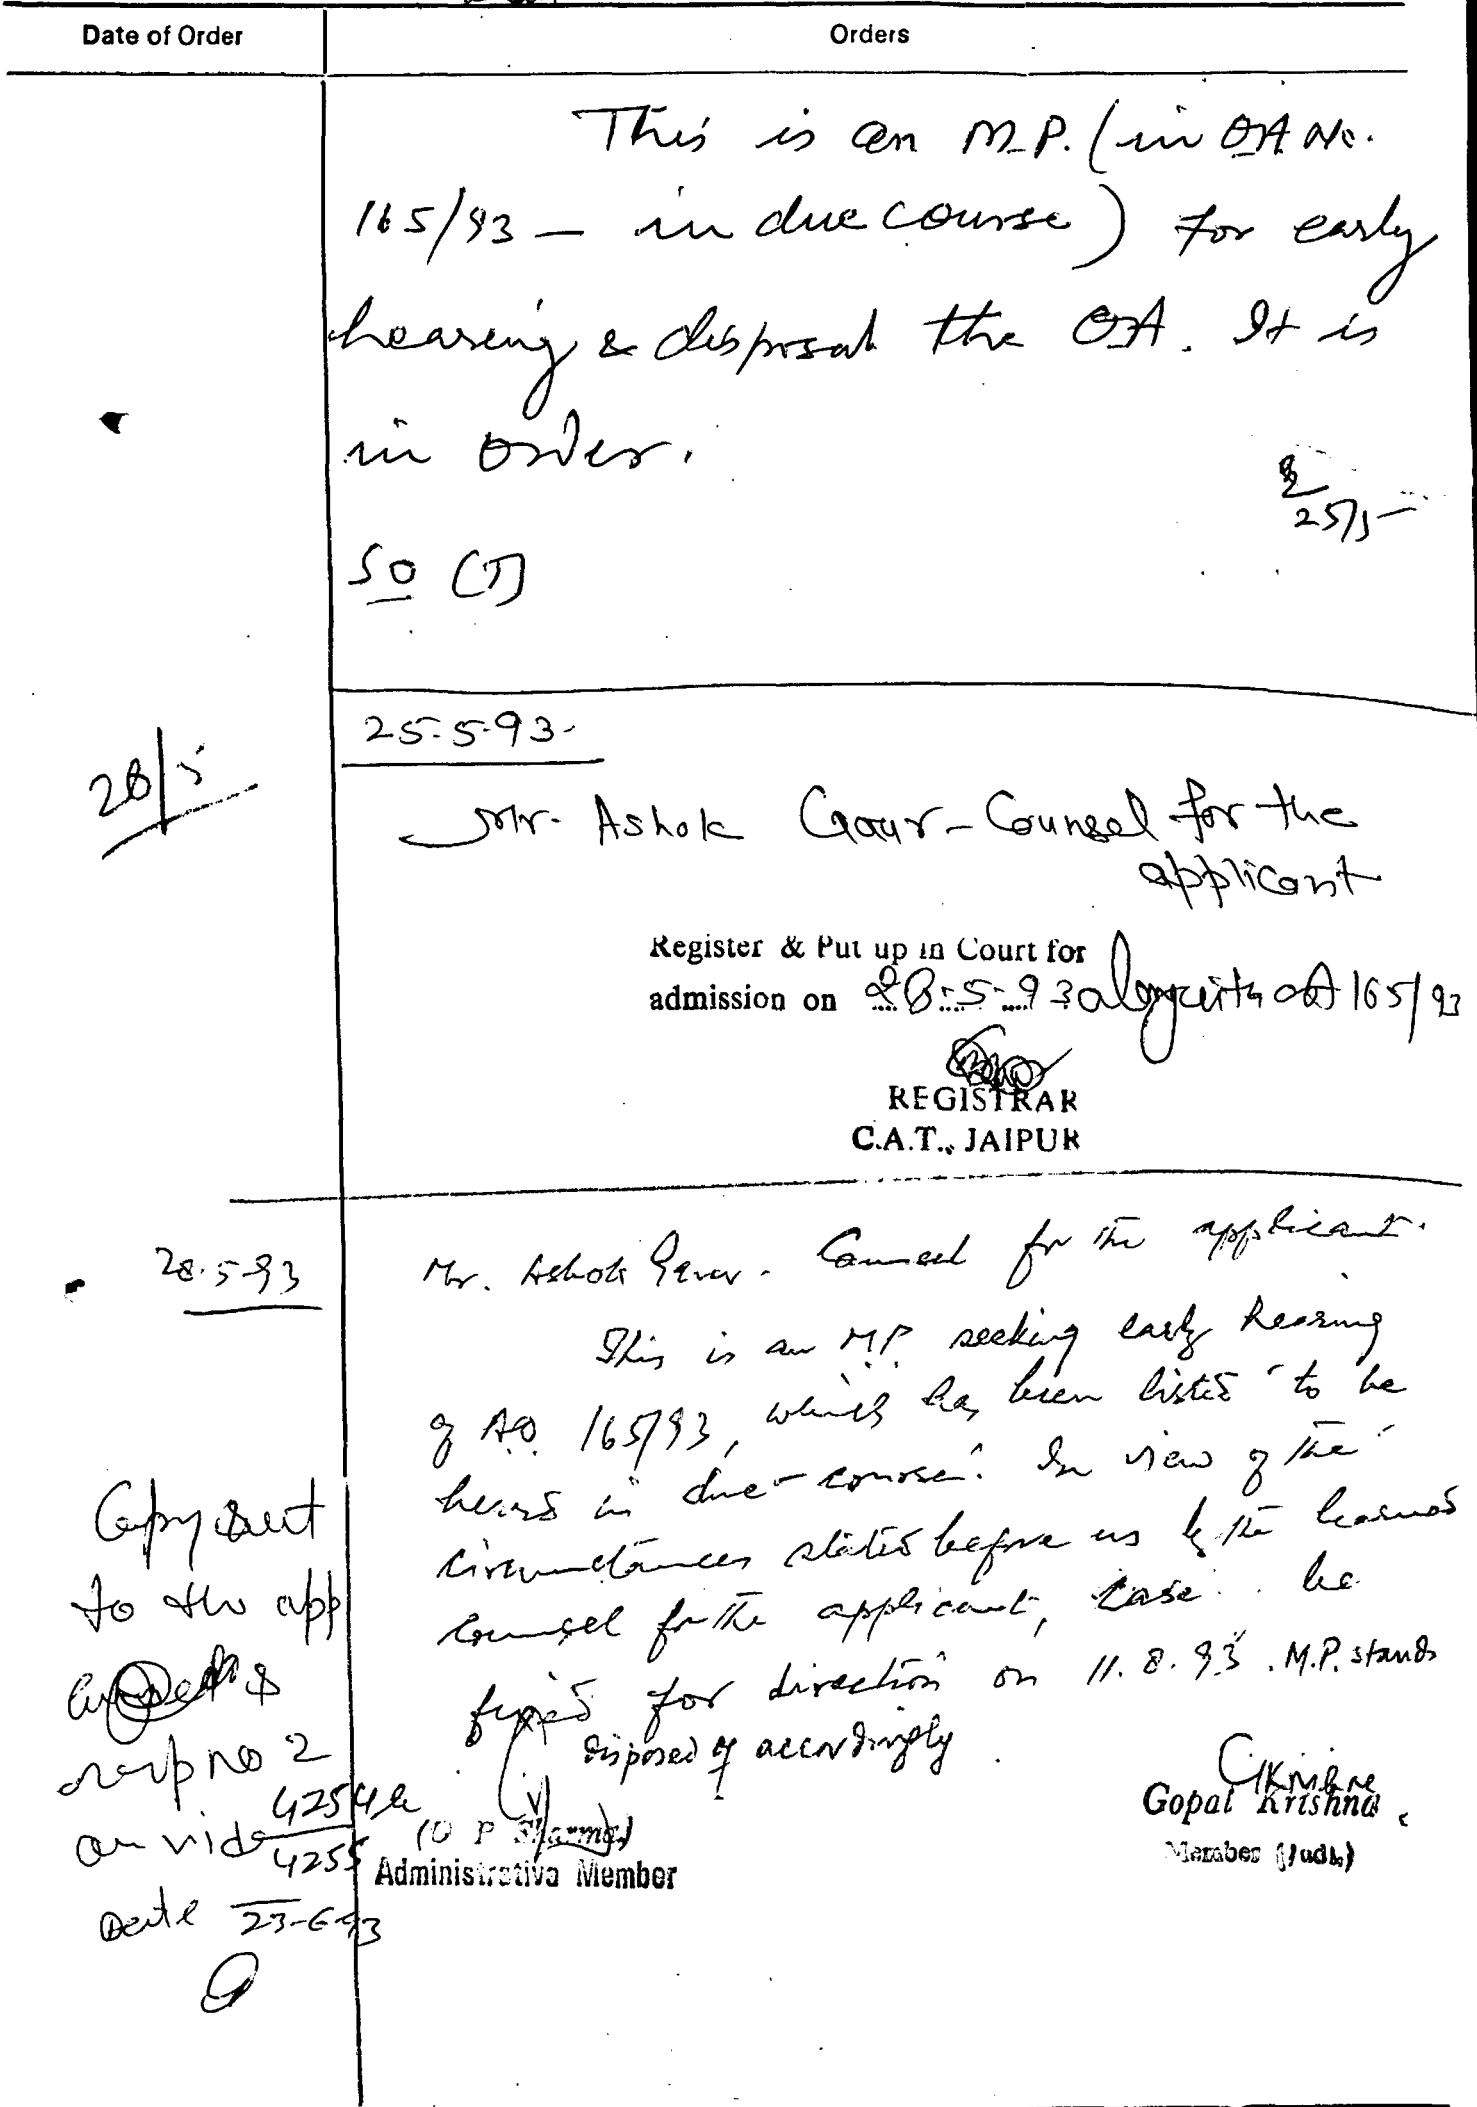 Date of Order
Orders
This is an M.P. (in OA No.
165/93 — in due course) for early
hearing & disposal the OA. It is
in order.
25/5
SO (J)
25-5-93
28/5
Mr. Ashok Gaur - Counsel for the
applicant
Register & Put up in Court for
admission on 28-5-93 alongwith OA 165/93
REGISTRAR
C.A.T., JAIPUR
28.5.93
Mr. Ashok Gaur. Counsel for the applicant.
This is an M.P. seeking early hearing
of 165/93, which has been listed to be
heard in due course. In view of the
circumstances stated before us by the learned
counsel for the applicant, case be
fixed for direction on 11.8.93. M.P. stands
disposed of accordingly.
Copy sent
to the app
resp no 2
on vide 4254 &
4255
Date 23-6-93
(O P Sharma)
Administrative Member
GKrishna
Gopal Krishna
Member (Judl.)